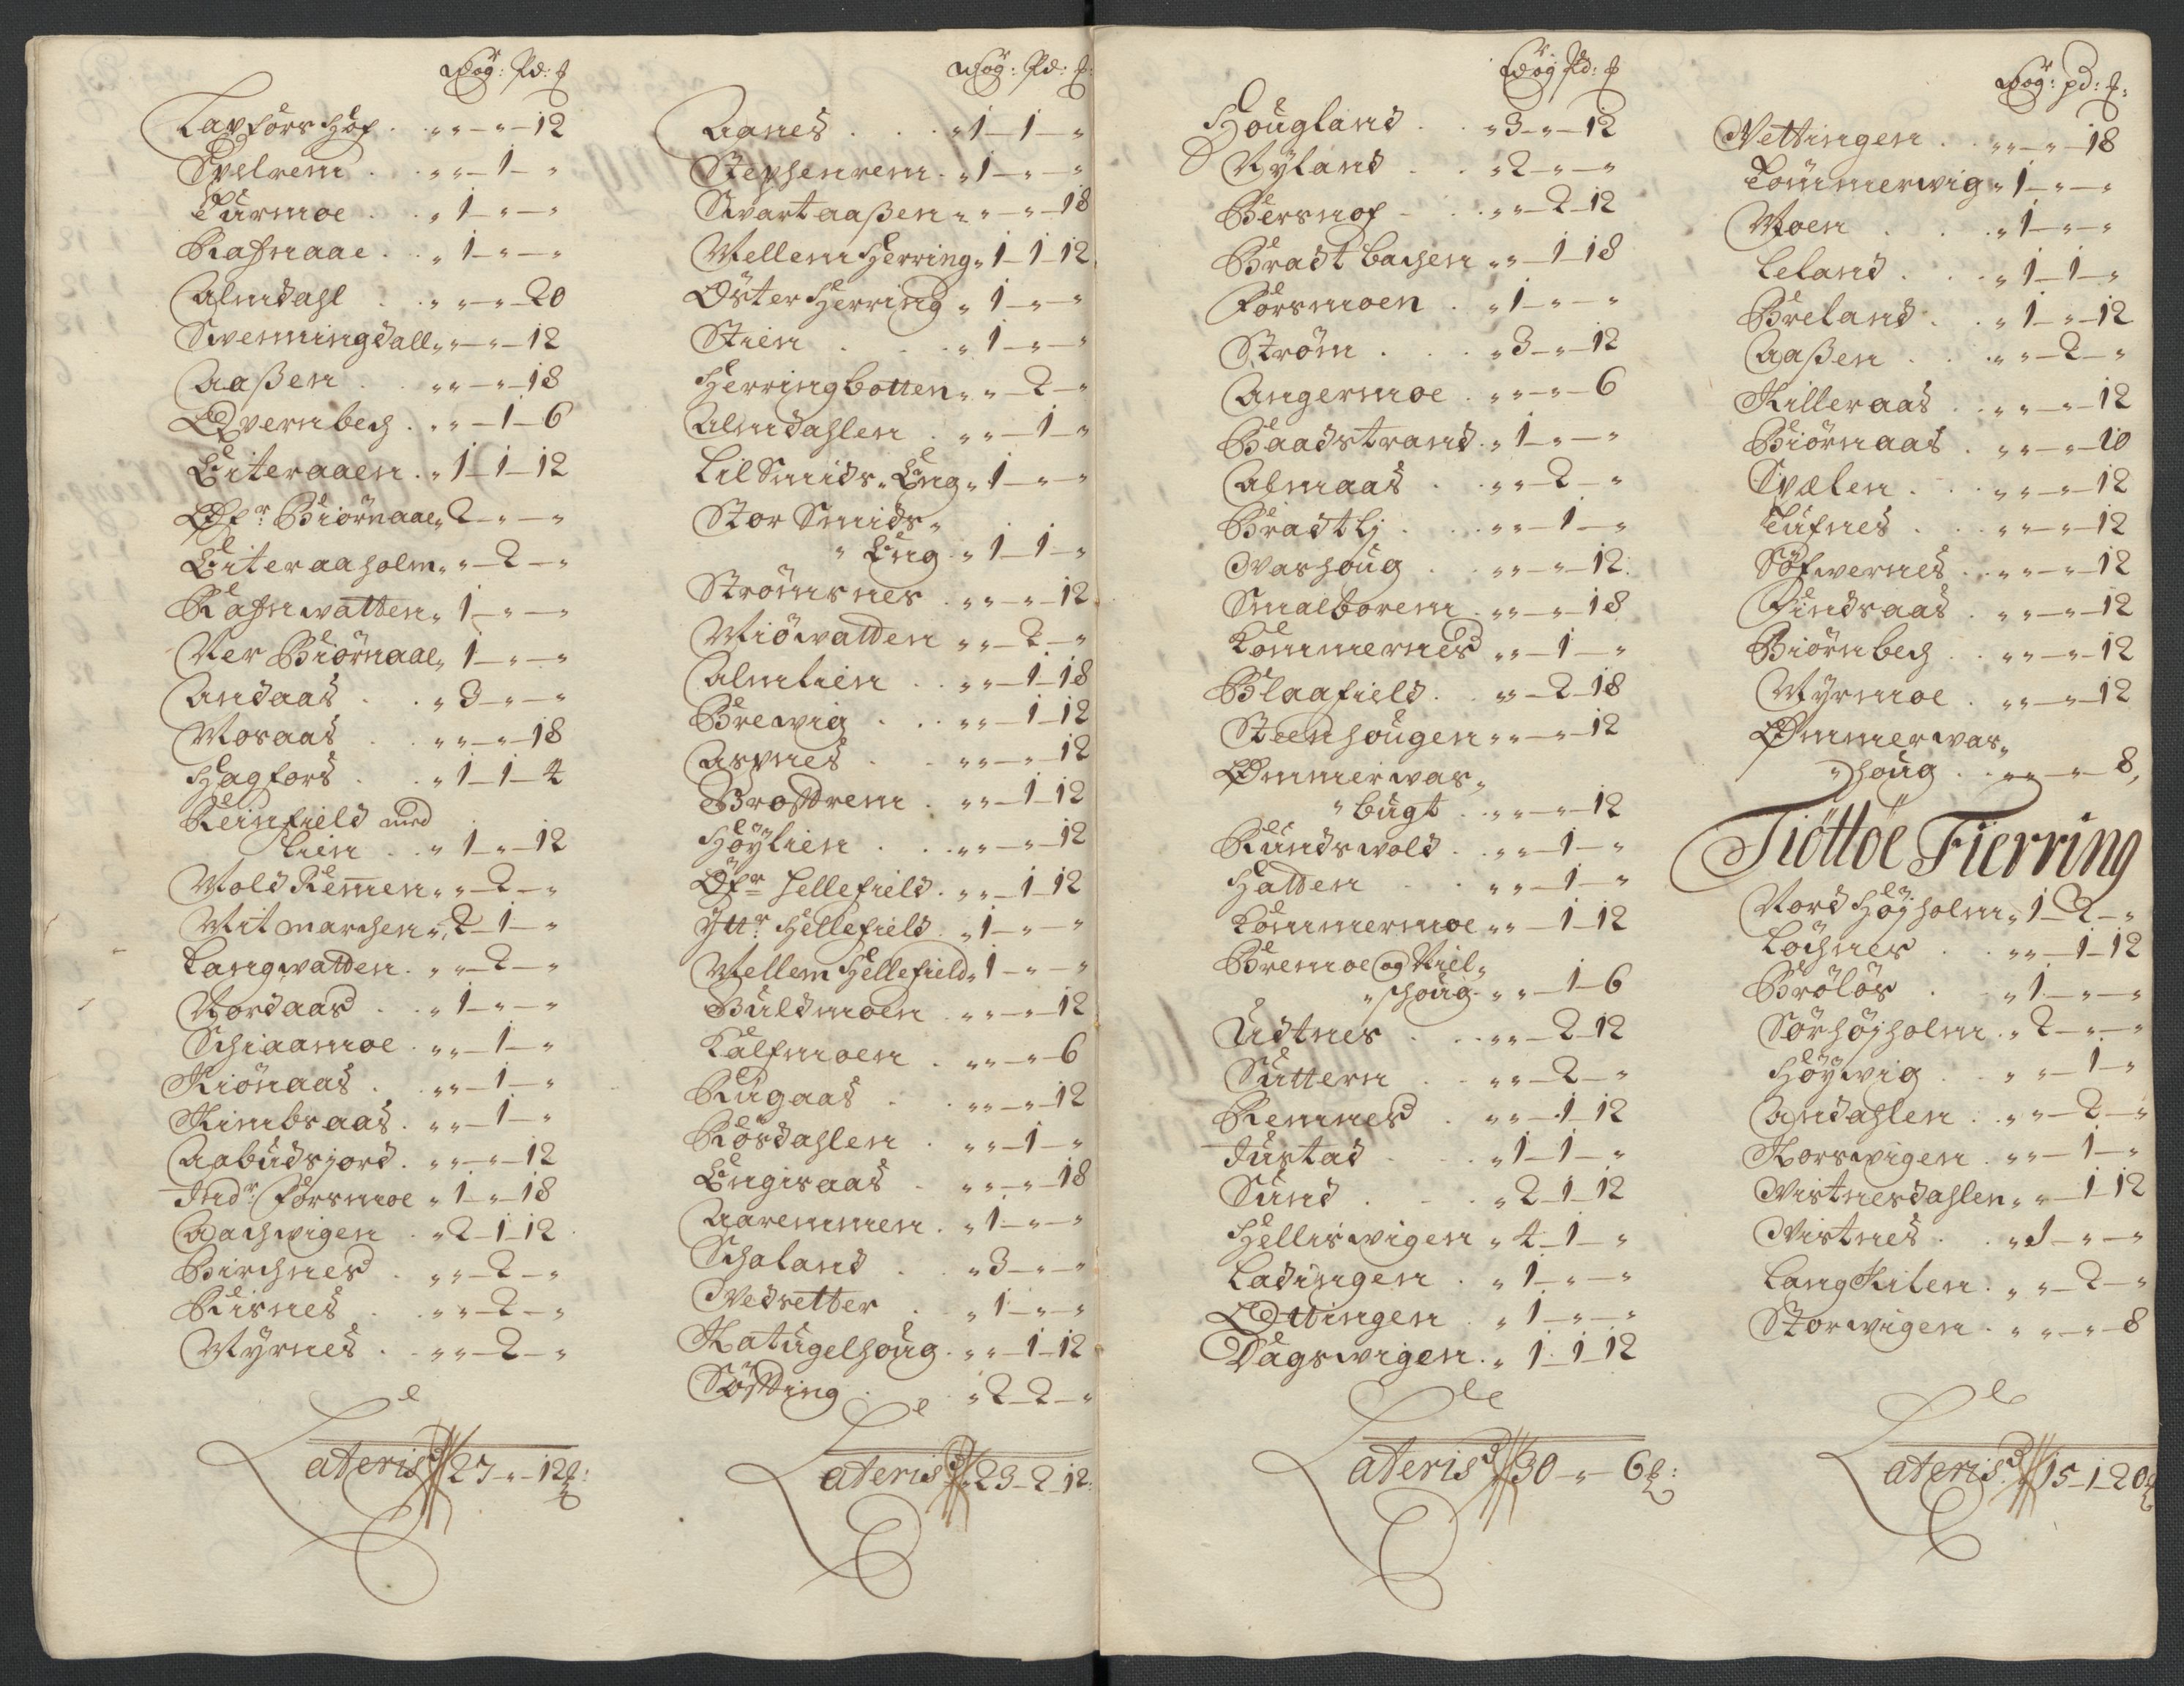 Wog: Pd: ℔
Laxforshof . . „ „ – „ – 12
Svelrem . . „ „ – 1 – „
Turmoe . . „ 1 – „ – „
Rafnaae . . „ 1 – „ – „
Almdahl . . „ „ – „ – 20
Svenningdall „ „ – „ – 12
Aaßen . . „ „ – „ – 18
Qvernbech . „ „ – 1 – 6
Eiteraaen . „ 1 – 1 – 12
Øfr Biörnaae „ 2 – „ – „
Eiteraaholm „ „ – 2 – „
Rafnwatten „ 1 – „ – „
Ner Biörnaae „ 1 – „ – „
Andaas . . „ 3 – „ – „
Mosaas . . „ „ – „ – 18
Hagfors . . „ 1 – 1 – 4
Reinfield med
Lien . . „ 1 – „ – 12
Vold Remen „ „ – 2 – „
Mitmarchen „ 2 – 1 – „
Langvatten . „ „ – 2 – „
Nordaas . . „ 1 – „ – „
Schiaamoe . „ „ – 1 – „
Kiönaas . . „ „ – 1 – „
Kimbsaas . „ „ – 1 – „
Aabudsjord . „ „ – „ – 12
Indr Forsmoe „ 1 – „ – 18
Aachvigen . „ 2 – 1 – 12
Birchnes . „ „ – 2 – „
Risnes . . „ „ – 2 – „
Myrnes . . „ „ – 2 – „
Lateris 27 – „ – 12 ℔:
Wog: Pd: ℔:
Aanes . . . „ 1 – 1 – „
Stephenrem . „ 1 – „ – „
Svartaaßen „ „ – „ – 18
Mellem Herring „ 1 – 1 – 12
Öster Herring „ 1 – „ – „
Stien . . . „ 1 – „ – „
Herringbotten „ „ – 2 – „
Almdahlen . „ „ – 1 – „
Lil Smids „ Eng „ 1 – „ – „
Stor Smids „
„ Eng . „ 1 – 1 – „
Strömsnes . „ „ – „ – 12
Miövatten „ „ – 2 – „
Almlien . . „ „ – 1 – 18
Brewig . . „ „ – 1 – 12
Aspnes . . „ „ – „ – 12
Brottrem . „ „ – 1 – 12
Höylien . . „ „ – „ – 12
Øfr Hellefield . „ „ – 1 – 12
Yttr Hellefield . „ 1 – „ – „
Mellem Hellefield „ 1 – „ – „
Buldmoen . „ „ – „ – 12
Kalfmoen . „ „ – „ – 6
Rugaas . . „ „ – „ – 12
Rösdahlen . „ „ – 1 – „
Engisaas . „ „ – „ – 18
Aaremmen . „ 1 – „ – „
Schaland . „ 3 – „ – „
Vedsetter . „ 1 – „ – „
Katugelhoug . „ „ – 1 – 12
Söfting . . „ 2 – 2 – „
Lateris 29 – 2 – 12:
Wog Pd: ℔
Hougland . . „ 3 – „ – 12
Ryland . . „ 2 – „ – „
Bersnof . . „ „ – 2 – 12
Bradtbachen „ „ – 1 – 18
Forsmoen . „ 1 – „ – „
Ström . . . „ 3 – „ – 12
Angermoe . „ „ – „ – 6
Baadstrand . „ 1 – „ – „
Almaas . . „ „ – 2 – „
Bradtlj . . „ „ – 1 – „
Vashoug . . „ „ – „ – 12
Smalborem . „ „ – „ – 18
Tömmernes „ „ – 1 – „
Blaafield . „ „ – 2 – 18
Steenhougen „ „ – „ – 12
Ømmerwas „
„ bugt . . „ „ – „ – 12
Rundswold . „ „ – 1 – „
Hatten . . „ „ – 1 – „
Tömmermoe „ „ – 1 – 12
Bremoe og Niel „
„ schoug . „ „ – 1 – 6
Udtnes . . „ „ – 2 – 12
Suttern . . „ „ – 2 – „
Remnes . . „ „ – 1 – 12
Justad . . „ 1 – 1 – „
Sund . . . „ 2 – 1 – 12
Helliswigen „ 4 – 1 – „
Ladingen . „ 1 – „ – „
Ottingen . „ 1 – „ – „
Dagswigen . „ 1 – 1 – 12
Lateris 30 – „ – 6 ℔:
Wog: pd: ℔:
Nettingen . . „ „ – „ – 18
Tömmerwig „ 1 – „ – „
Moen . . . „ 1 – „ – „
Leland . . „ 1 – 1 – „
Breland . . „ 1 – „ – 12
Aaßen . . „ „ – 2 – „
Killeraas . „ „ – „ – 12
Biörnaas . „ „ – „ – 10
Svælen . . „ „ – „ – 12
Tufnes . . „ „ – „ – 12
Söfwernes . „ „ – „ – 12
Findsaas . „ „ – „ – 12
Biörnbech . „ „ – „ – 12
Myrmoe . „ „ – „ – 12
Ømmerwas „
„ houg . „ „ – „ – 8,
Tiöttöe Fierring
Nord Höjholm „ 1 – 2 – „
Lochnes . . „ „ – 1 – 12
Brölös . . „ 1 – „ – „
Sörhöjholm . „ 2 – „ – „
Höywig . . „ „ – 1 – „
Andahlen . „ „ – 2 – „
Korswigen . „ „ – 1 – „
Vistnesdahlen „ „ – 1 – 12
Vistnes . . „ 1 – „ – „
Langkilen . „ „ – 2 – „
Storwigen . „ „ – „ – 8
Lateris 15 – 1 – 20 ℔